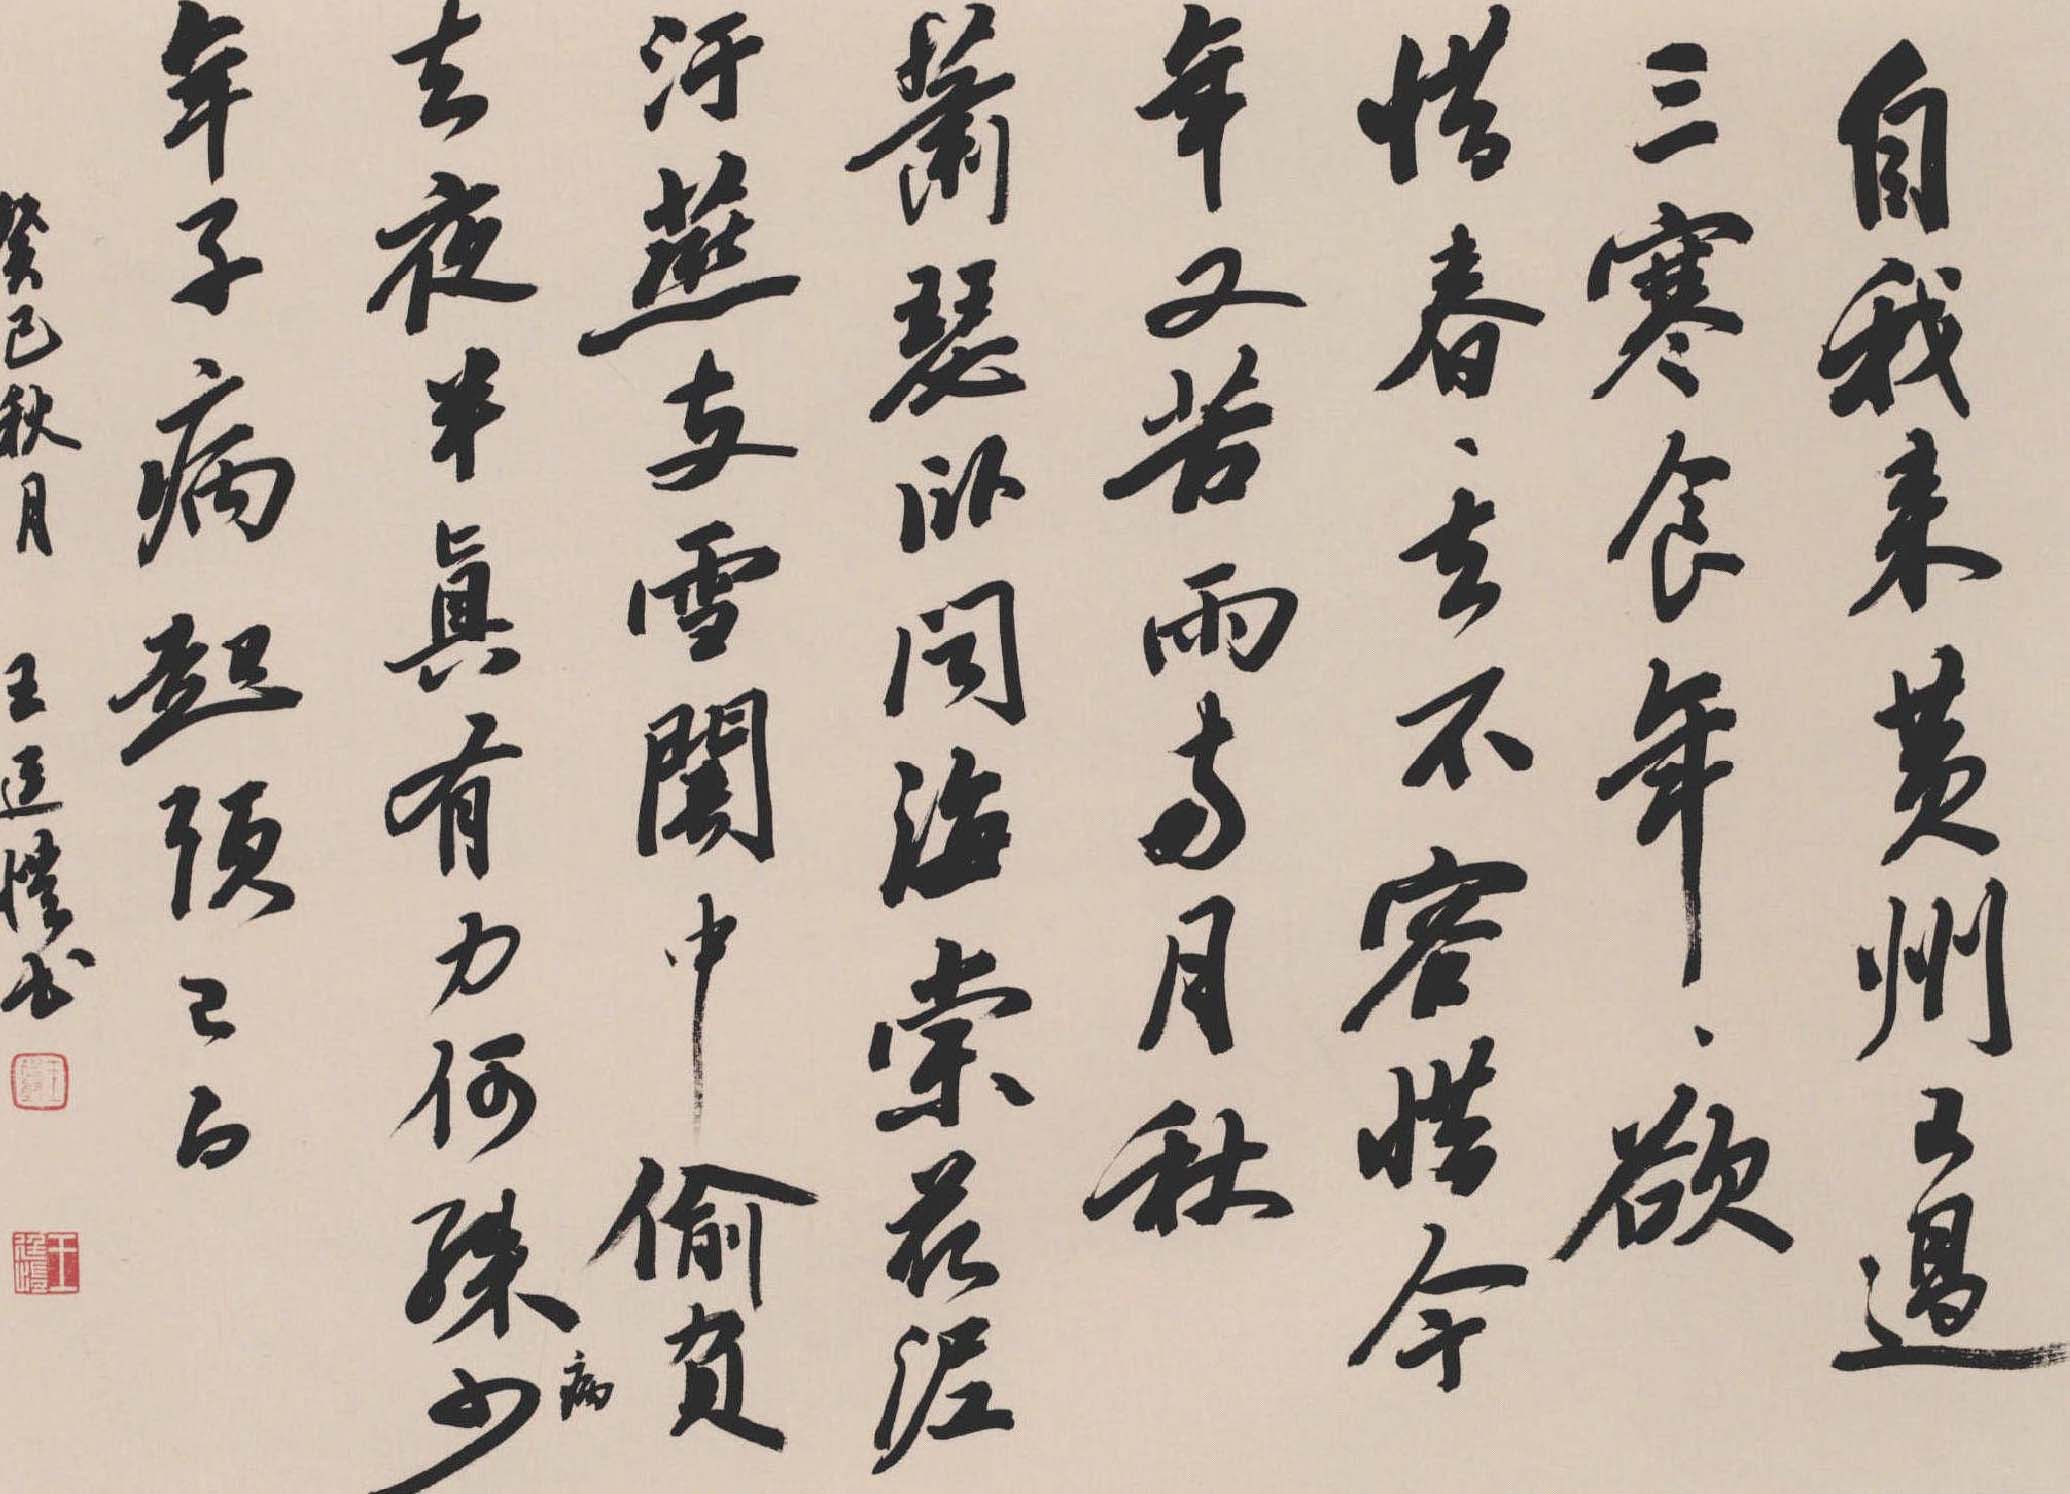 自我来黄州已過
三寒食年、欲
惜春、去不容惜今
年又苦雨两月秋
蕭瑟卧闻海棠花泥
汙燕支雪闇中偷負
去夜半眞有力何殊少
病
年子病起须已白
癸巳秋月 王